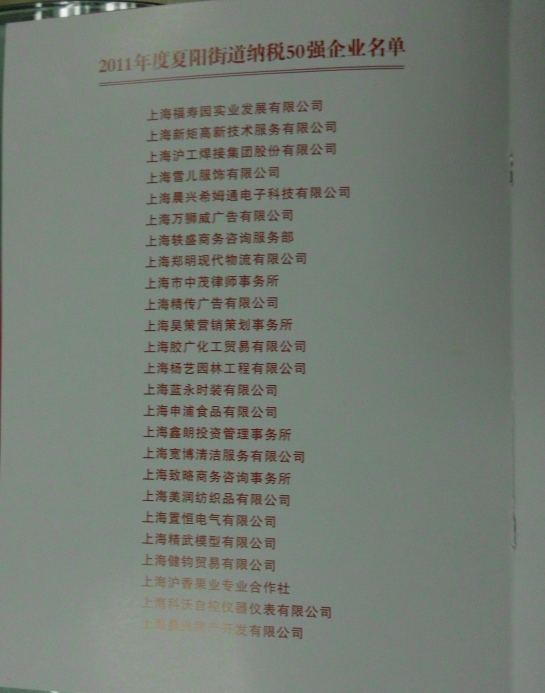 2011年度夏阳街道纳税50强企业名单
上海福寿园实业发展有限公司
上海新矩高新技术服务有限公司
上海沪工焊接集团股份有限公司
上海雪儿服饰有限公司
上海晨兴希姆通电子科技有限公司
上海万狮威广告有限公司
上海轶盛商务咨询服务部
上海郑明现代物流有限公司
上海市中茂律师事务所
上海精传广告有限公司
上海昊策营销策划事务所
上海胶广化工贸易有限公司
上海杨艺园林工程有限公司
上海蓝永时装有限公司
上海申浦食品有限公司
上海鑫朗投资管理事务所
上海宽博清洁服务有限公司
上海致略商务咨询事务所
上海美润纺织品有限公司
上海置恒电气有限公司
上海精武模型有限公司
上海健钧贸易有限公司
上海沪香果业专业合作社
上海科沃自控仪器仪表有限公司
上海 开发有限公司